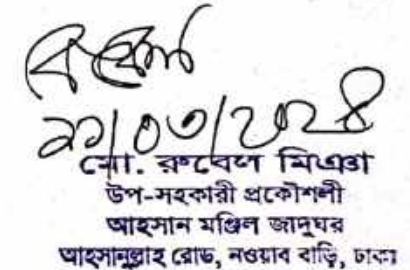 ২১/০৩/২০২৪
মো. রুবেল মিঞা
উপ-সহকারী প্রকৌশলী
আহসান মঞ্জিল জাদুঘর
আহসানুল্লাহ রোড, নওয়াব বাড়ি, ঢাকা